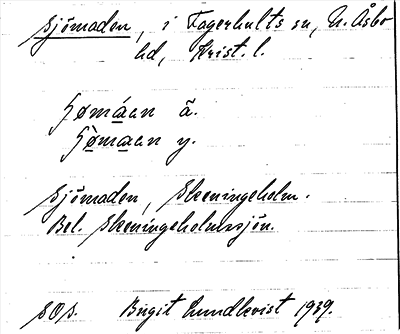 Sjömaden, i Fagerhults sn, N. Åsbo
hd, Krist. l.
sjömaden, Skeeningeholm.
Bel. Skeeningeholmssjön.
SOS. Birgit Lundkvist 1939.